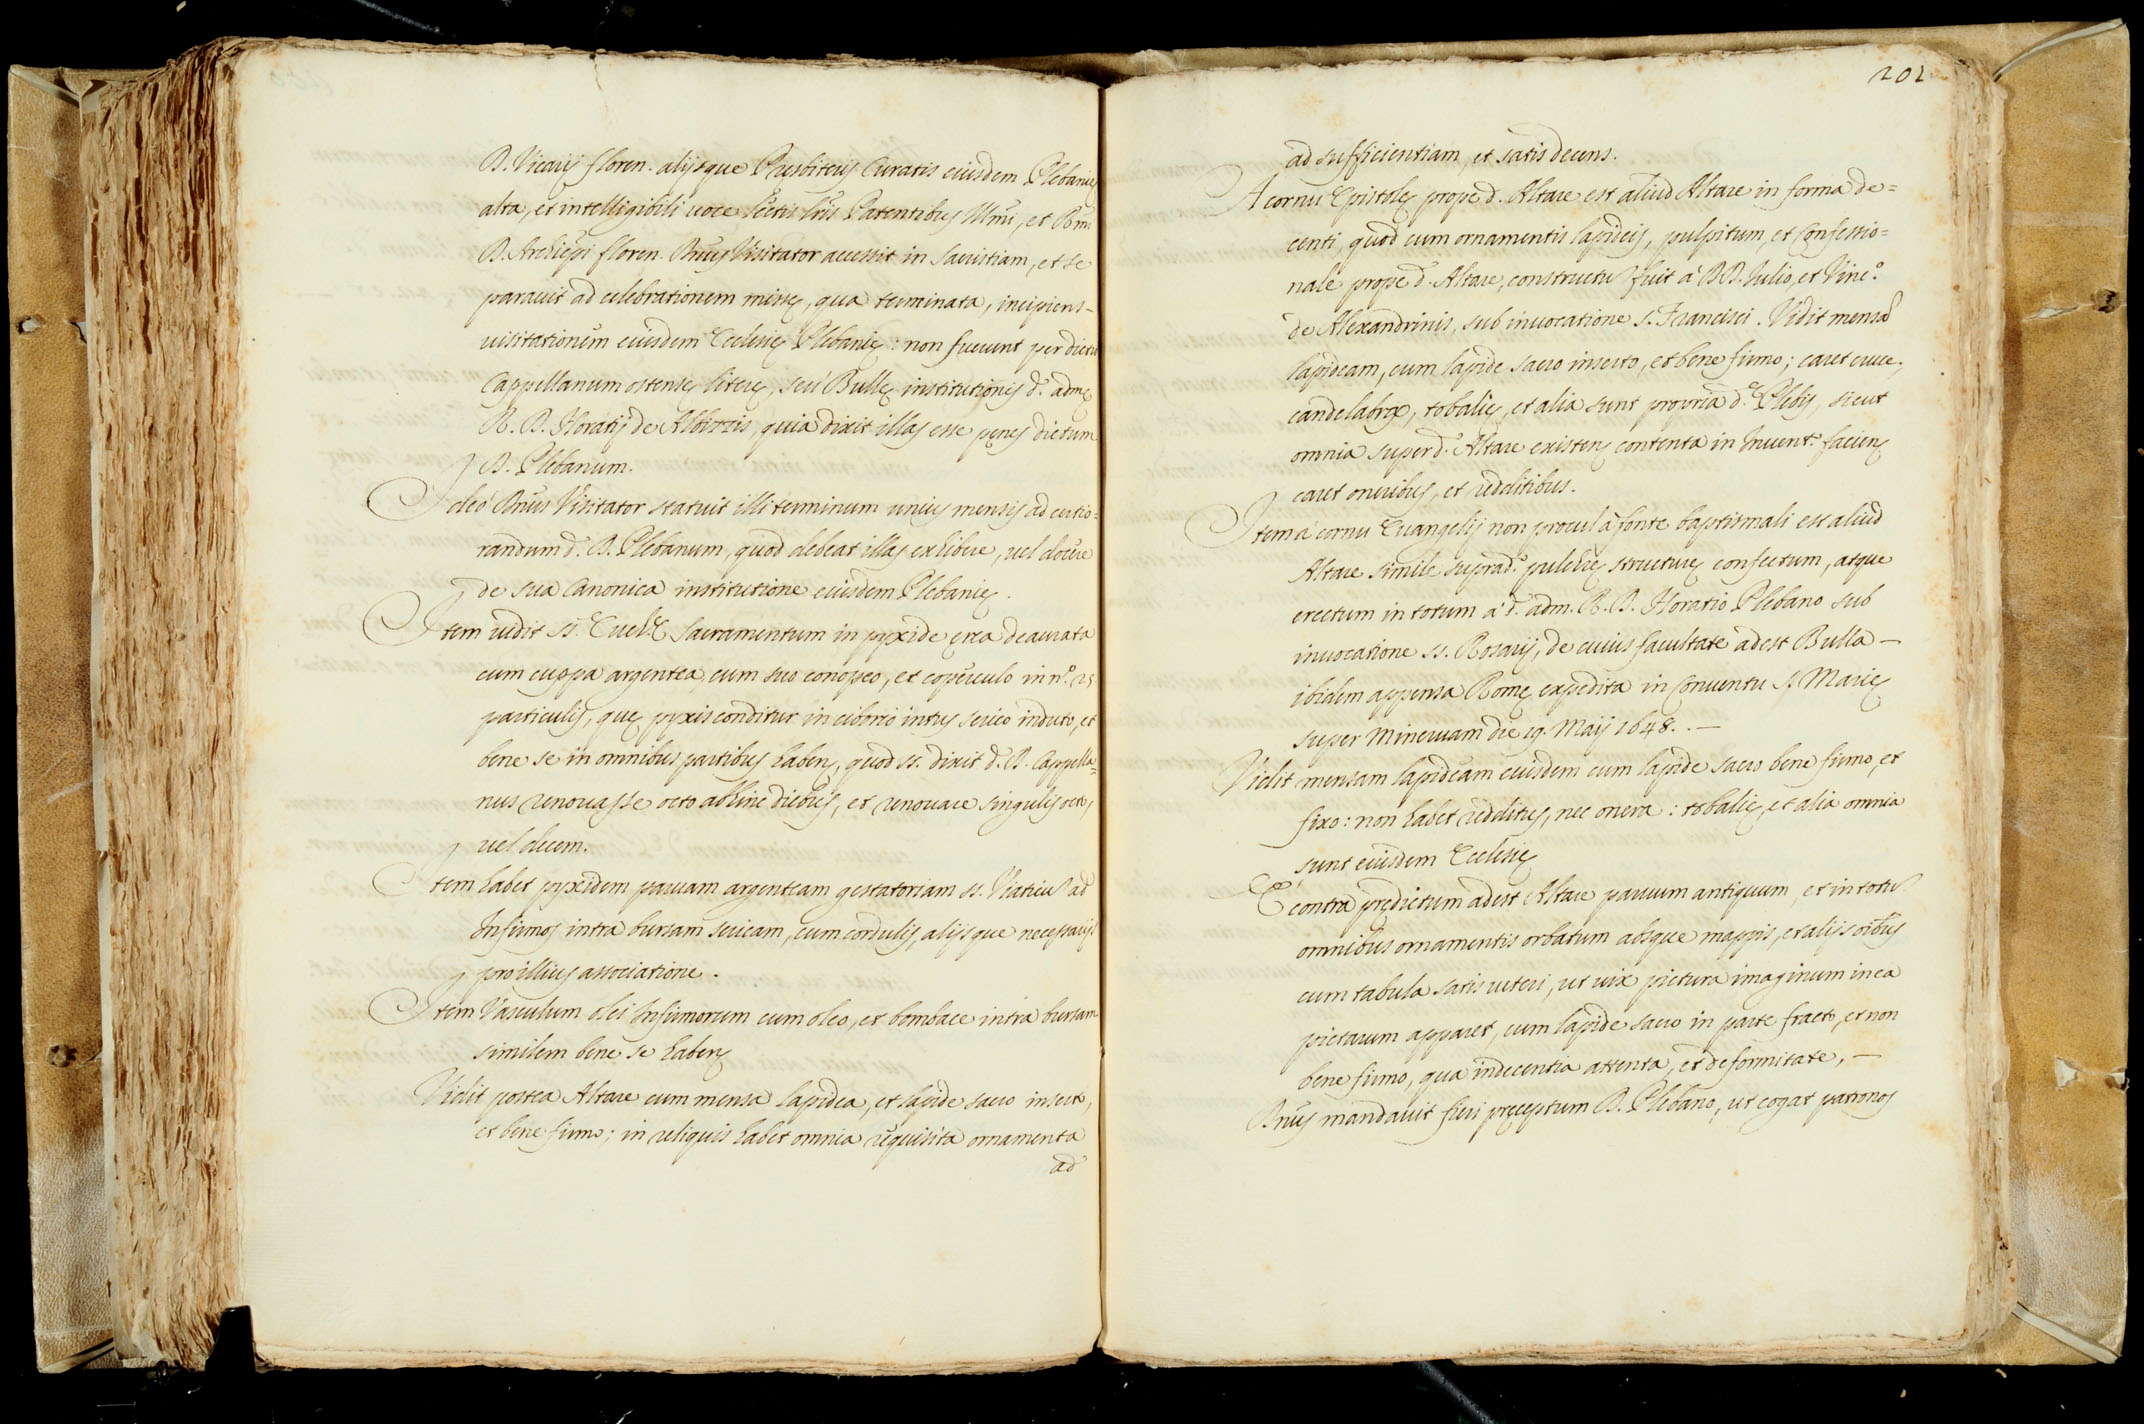 D. Vicarij floren. alijsque Presbiteris Curatis eiusdem Plebanię
alta, et intelligibili uoce lectis lris Patentibus Illmi, et Rmi
D. Archiepi floren. Dnus Visitator accessit in Sacristiam, et se
parauit ad celebrationem missę, qua terminata, incipiens
uisitationem eiusdem Ecclesię Plebanię: non fuerunt per dictu
Cappellanum ostensę literę, seu Bullę institutionis d. adm
R. D. Horatij de Albizzis, quia dixit illas esse penes dictum
D. Plebanum.
Ideo Dnus Visitator statuit illi terminum unius mensis ad certio=
randum d. D. Plebanum, quod debeat illas exhibere, uel docere
de sua Canonica institutione eiusdem Plebanię.
Item uidit ss. Euch. Sacramentum in pyxide ęrea deaurata
cum cuppa argentea, cum suo conopeo, et coperculo in n.º 25
particulis, quę pyxis conditur in ciborio intus serico induto, et
bene se in omnibus partibus haben, quod ss. dixit d. D. Cappella=
nus renouasse octo abhinc diebus, et renouare singulis octo,
uel decem.
Item habet pyxidem paruam argenteam gestatoriam ss. Viaticu ad
Infirmos intra bursam sericam, cum cordulis, alijsque necessarijs
pro illius associatione.
Item Vasculum olei Infirmorum cum oleo, et bombace intra bursam
similem bene se haben
Vidit postea Altare cum mensa lapidea, et lapide sacro inserto,
et bene firmo; in reliquis habet omnia requisita ornamenta
ad
202
ad sufficientiam, et satis decens.
A cornu Epistolę prope d. Altare est aliud Altare in forma de=
centi, quod cum ornamentis lapideis, pulpitum, et Confessio=
nale prope d. Altare, constructu fuit à DD. Iulio, et Vinc.º
de Alexandrinis, sub inuocatione S. Francisci. Vidit mensa
lapideam, cum lapide sacro inserto, et bene firmo; caret cruce,
candelabra, tobalię, et alia sunt propria d.ę Plebis, sicut
omnia super d. Altare existen contenta in Inuent.º facien
caret oneribus, et redditibus.
Item à cornu Euangelij non procul à fonte baptismali est aliud
Altare simile suprad.º pulchrę structurę confectum, atque
erectum in totum à d. adm. R. D. Horatio Plebano sub
inuocatione ss. Rosarij, de cuius facultate adest Bulla —
ibidem appensa Romę expedita in Conuentu S. Marię
super Mineruam die 19. Maij 1648. —
Vidit mensam lapideam eiusdem cum lapide sacro bene firmo, et
fixo: non habet redditus, nec onera: tobalię, et alia omnia
sunt eiusdem Ecclesię
E contra prędictum adest Altare paruum antiquum, et in totu
omnibus ornamentis orbatum absque mappis, et alijs oibus
cum tabula satis ueteri, ut uix pictura imaginum in ea
pictarum apparet, cum lapide sacro in parte fracto, et non
bene firmo, qua indecentia attenta, et deformitate, —
Dnus mandauit fieri pręceptum D. Plebano, ut cogat patronos